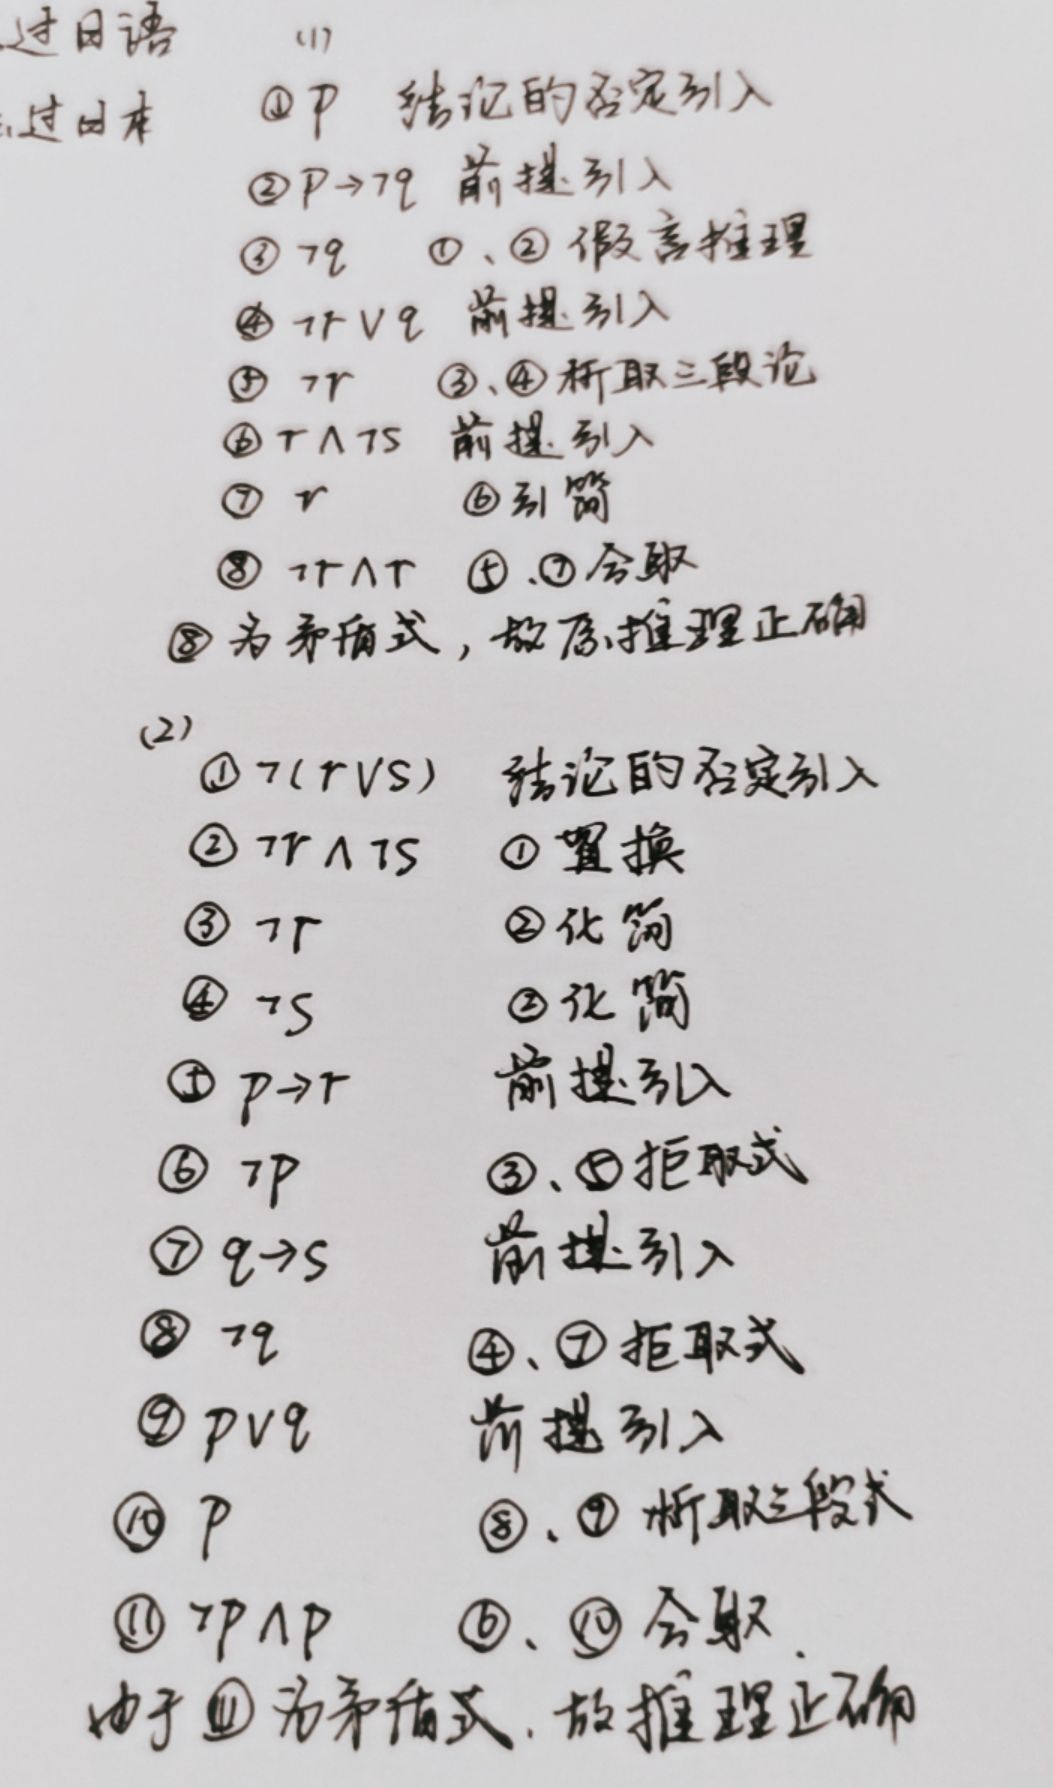 过日语
过日本
(1)
① p 结论的否定引入
② p→¬q 前提引入
③ ¬q ①、② 假言推理
④ ¬r∨q 前提引入
⑤ ¬r ③、④ 析取三段论
⑥ r∧¬s 前提引入
⑦ r ⑥ 引简
⑧ ¬r∧r ⑤、⑦ 合取
⑧ 为矛盾式,故原推理正确
(2)
① ¬(r∨s) 结论的否定引入
② ¬r∧¬s ① 置换
③ ¬r ② 化简
④ ¬s ② 化简
⑤ p→r 前提引入
⑥ ¬p ③、⑤ 拒取式
⑦ q→s 前提引入
⑧ ¬q ④、⑦ 拒取式
⑨ p∨q 前提引入
⑩ p ⑧、⑨ 析取三段式
⑪ ¬p∧p ⑥、⑩ 合取
由于 ⑪ 为矛盾式.故推理正确